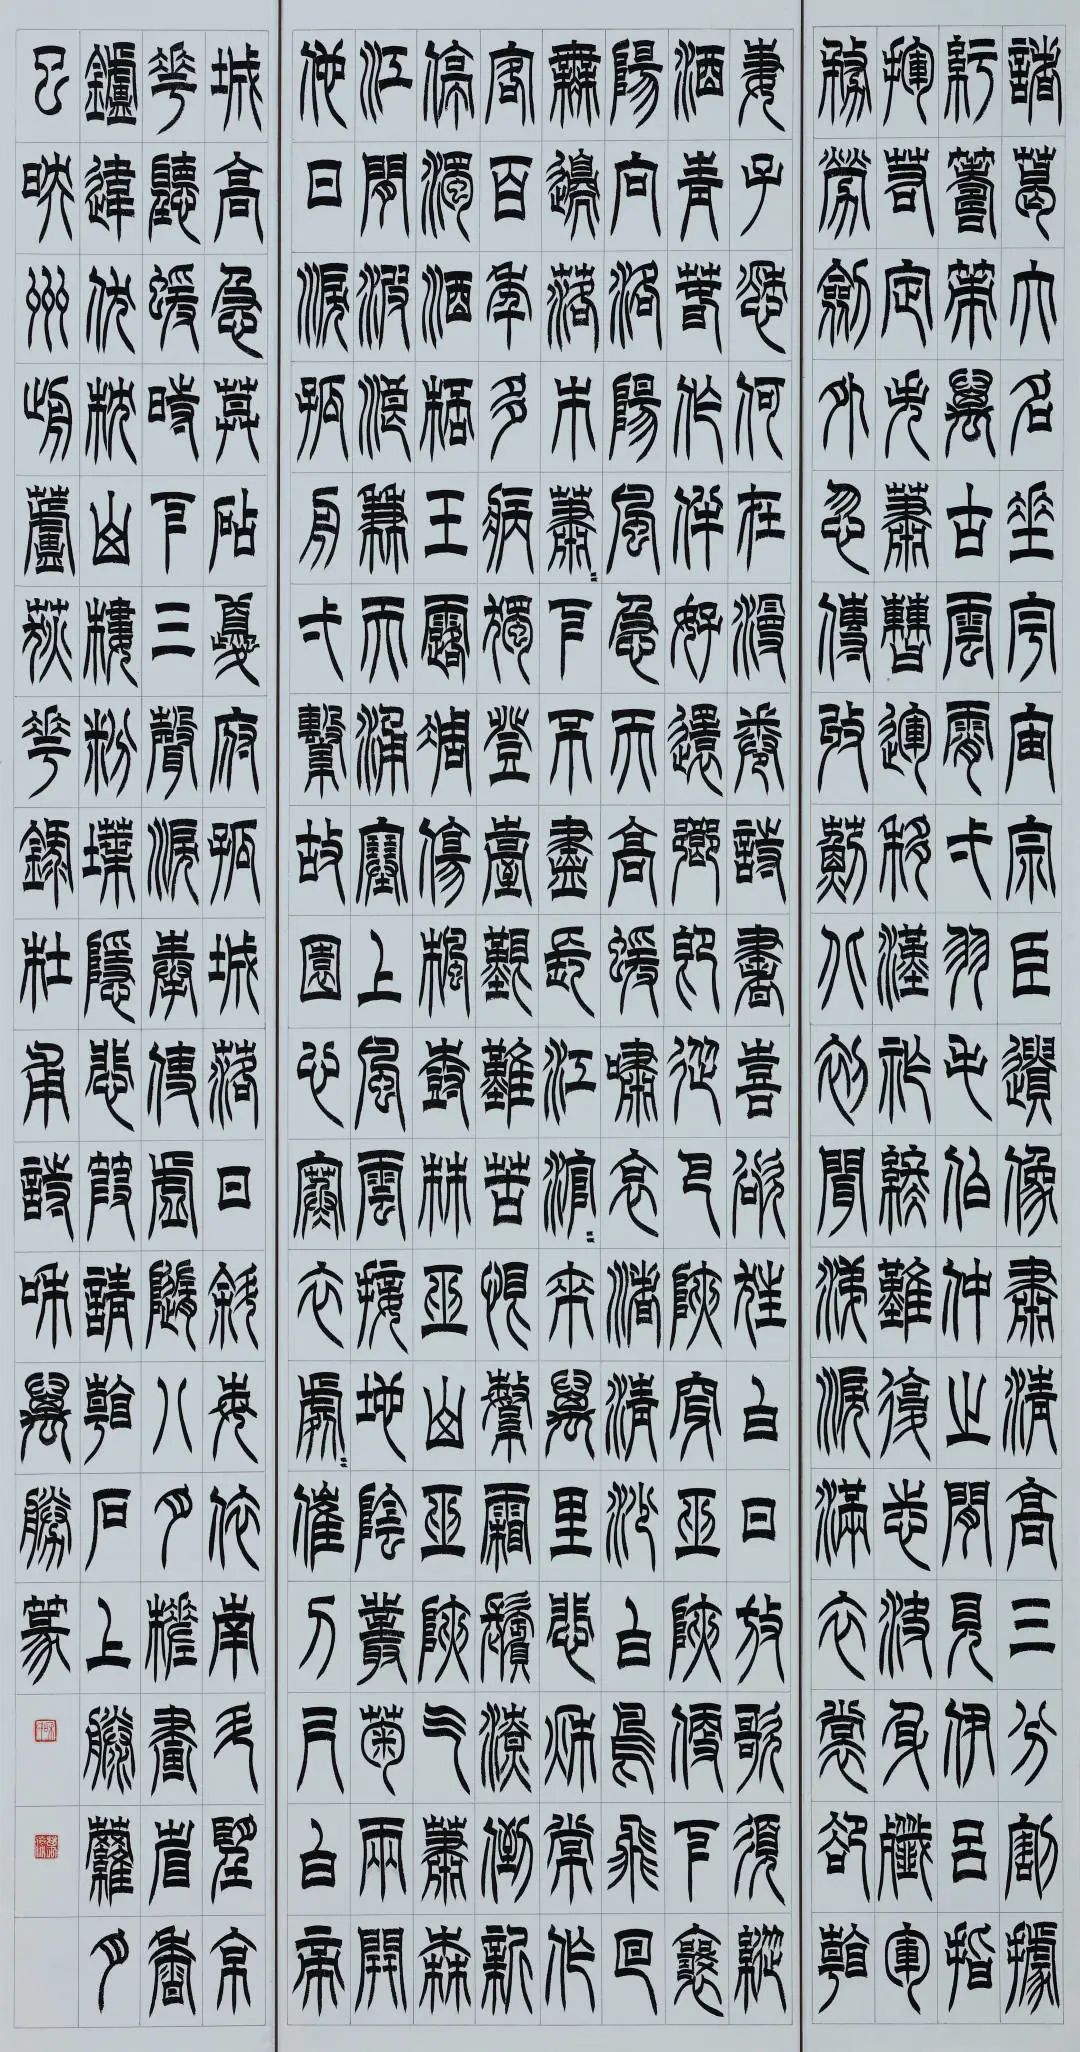 諸葛大名垂宇宙宗臣遺像肅清高三分割據
紆籌策萬古雲霄一羽毛伯仲之間見伊呂指
揮若定失蕭曹運移漢祚終難復志決身殲軍
務勞劍外忽傳收薊北初聞涕淚滿衣裳卻看
妻子愁何在漫卷詩書喜欲狂白日放歌須縱
酒青春作伴好還鄉即從巴峽穿巫峽便下襄
陽向洛陽風急天高猿嘯哀渚清沙白鳥飛回
無邊落木蕭〻下不盡長江滾〻來萬里悲秋常作
客百年多病獨登臺艱難苦恨繁霜鬢潦倒新
停濁酒杯玉露凋傷楓樹林巫山巫峽氣蕭森
江間波浪兼天湧塞上風雲接地陰叢菊兩開
他日淚孤舟一繫故園心寒衣處〻催刀尺白帝
城高急暮砧夔府孤城落日斜每依南斗望京
華聽猿時下三聲淚奉使虛隨八月槎畫省香
爐違伏枕山樓粉堞隱悲笳請看石上藤蘿月
已映州前蘆荻花錄杜甫詩萬勝篆